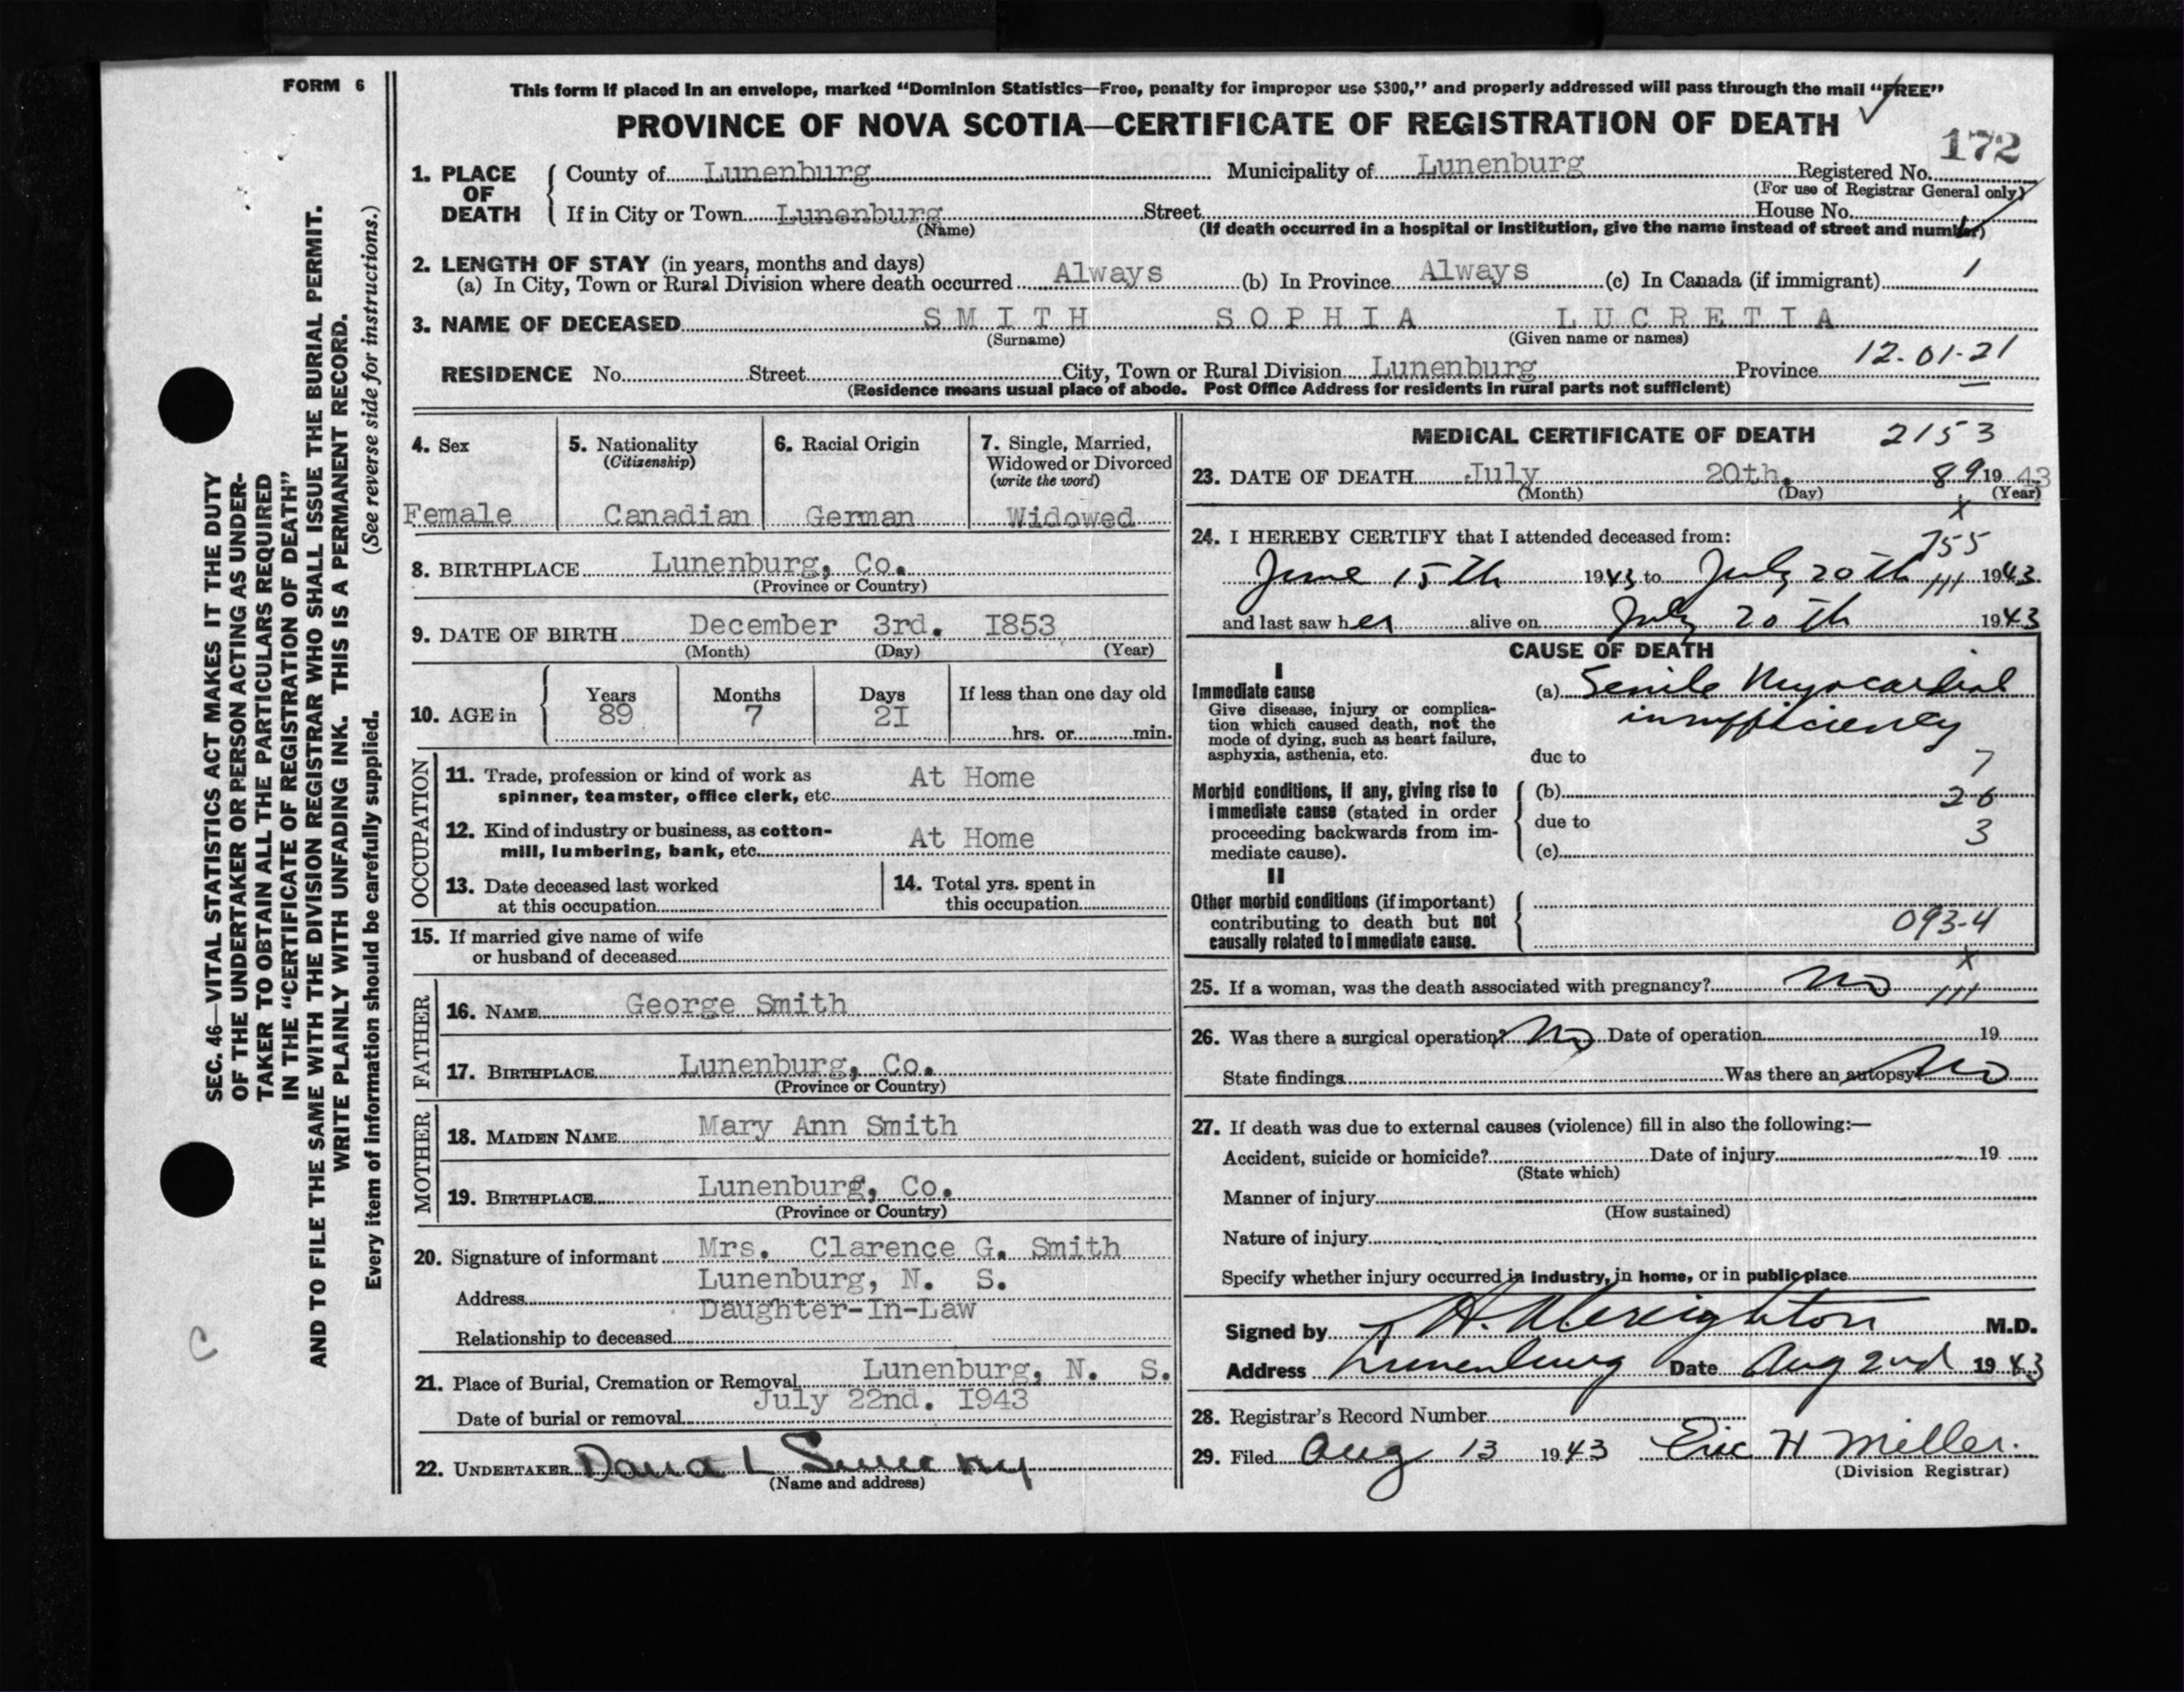 FORM 6
This form if placed in an envelope, marked “Dominion Statistics—Free, penalty for improper use $300,” and properly addressed will pass through the mail “FREE”
PROVINCE OF NOVA SCOTIA—CERTIFICATE OF REGISTRATION OF DEATH
172
1. PLACE OF DEATH { County of Lunenburg Municipality of Lunenburg Registered No.
(For use of Registrar General only)
If in City or Town Lunenburg Street House No.
(Name) (If death occurred in a hospital or institution, give the name instead of street and number)
2. LENGTH OF STAY (in years, months and days)
(a) In City, Town or Rural Division where death occurred Always (b) In Province Always (c) In Canada (if immigrant) 1
3. NAME OF DECEASED SMITH SOPHIA LUCRETIA
(Surname) (Given name or names)
12-01-21
RESIDENCE No. Street City, Town or Rural Division Lunenburg Province
(Residence means usual place of abode. Post Office Address for residents in rural parts not sufficient)
4. Sex 5. Nationality 6. Racial Origin 7. Single, Married,
(Citizenship) Widowed or Divorced
(write the word)
Female Canadian German Widowed
8. BIRTHPLACE Lunenburg, Co.
(Province or Country)
9. DATE OF BIRTH December 3rd. I853
(Month) (Day) (Year)
10. AGE in { Years Months Days If less than one day old
89 7 2I
hrs. or min.
OCCUPATION
11. Trade, profession or kind of work as At Home
spinner, teamster, office clerk, etc.
12. Kind of industry or business, as cotton- At Home
mill, lumbering, bank, etc.
13. Date deceased last worked 14. Total yrs. spent in
at this occupation this occupation
15. If married give name of wife
or husband of deceased
FATHER
16. NAME George Smith
17. BIRTHPLACE Lunenburg, Co.
(Province or Country)
MOTHER
18. MAIDEN NAME Mary Ann Smith
19. BIRTHPLACE Lunenburg, Co.
(Province or Country)
20. Signature of informant Mrs. Clarence G. Smith
Lunenburg, N. S.
Address
Daughter-In-Law
Relationship to deceased
21. Place of Burial, Cremation or Removal Lunenburg, N. S.
July 22nd. I943
Date of burial or removal
22. UNDERTAKER
(Name and address)
MEDICAL CERTIFICATE OF DEATH 2153
23. DATE OF DEATH July 20th. 89 19 43
(Month) (Day) (Year)
x
24. I HEREBY CERTIFY that I attended deceased from:
755
June 15th 1943 to July 20th 111 1943
and last saw her alive on July 20th 1943
CAUSE OF DEATH
I
Immediate cause (a) Senile Myocardial
Give disease, injury or complica- insufficiency
tion which caused death, not the
mode of dying, such as heart failure,
asphyxia, asthenia, etc. due to 7
Morbid conditions, if any, giving rise to (b) 26
immediate cause (stated in order due to
proceeding backwards from im- 3
mediate cause). (c)
II
Other morbid conditions (if important)
contributing to death but not 093-4
causally related to immediate cause.
x
25. If a woman, was the death associated with pregnancy? No 111
26. Was there a surgical operation? No Date of operation 19
State findings Was there an autopsy? No
27. If death was due to external causes (violence) fill in also the following:—
Accident, suicide or homicide? Date of injury 19
(State which)
Manner of injury
(How sustained)
Nature of injury
Specify whether injury occurred in industry, in home, or in public place
Signed by H. A. Creighton M.D.
Address Lunenburg Date Aug 2nd 1943
28. Registrar's Record Number
29. Filed Aug 13 1943 Eric H Miller.
(Division Registrar)
SEC. 46—VITAL STATISTICS ACT MAKES IT THE DUTY
OF THE UNDERTAKER OR PERSON ACTING AS UNDER-
TAKER TO OBTAIN ALL THE PARTICULARS REQUIRED
IN THE “CERTIFICATE OF REGISTRATION OF DEATH”
AND TO FILE THE SAME WITH THE DIVISION REGISTRAR WHO SHALL ISSUE THE BURIAL PERMIT.
WRITE PLAINLY WITH UNFADING INK. THIS IS A PERMANENT RECORD.
Every item of information should be carefully supplied. (See reverse side for instructions.)
C